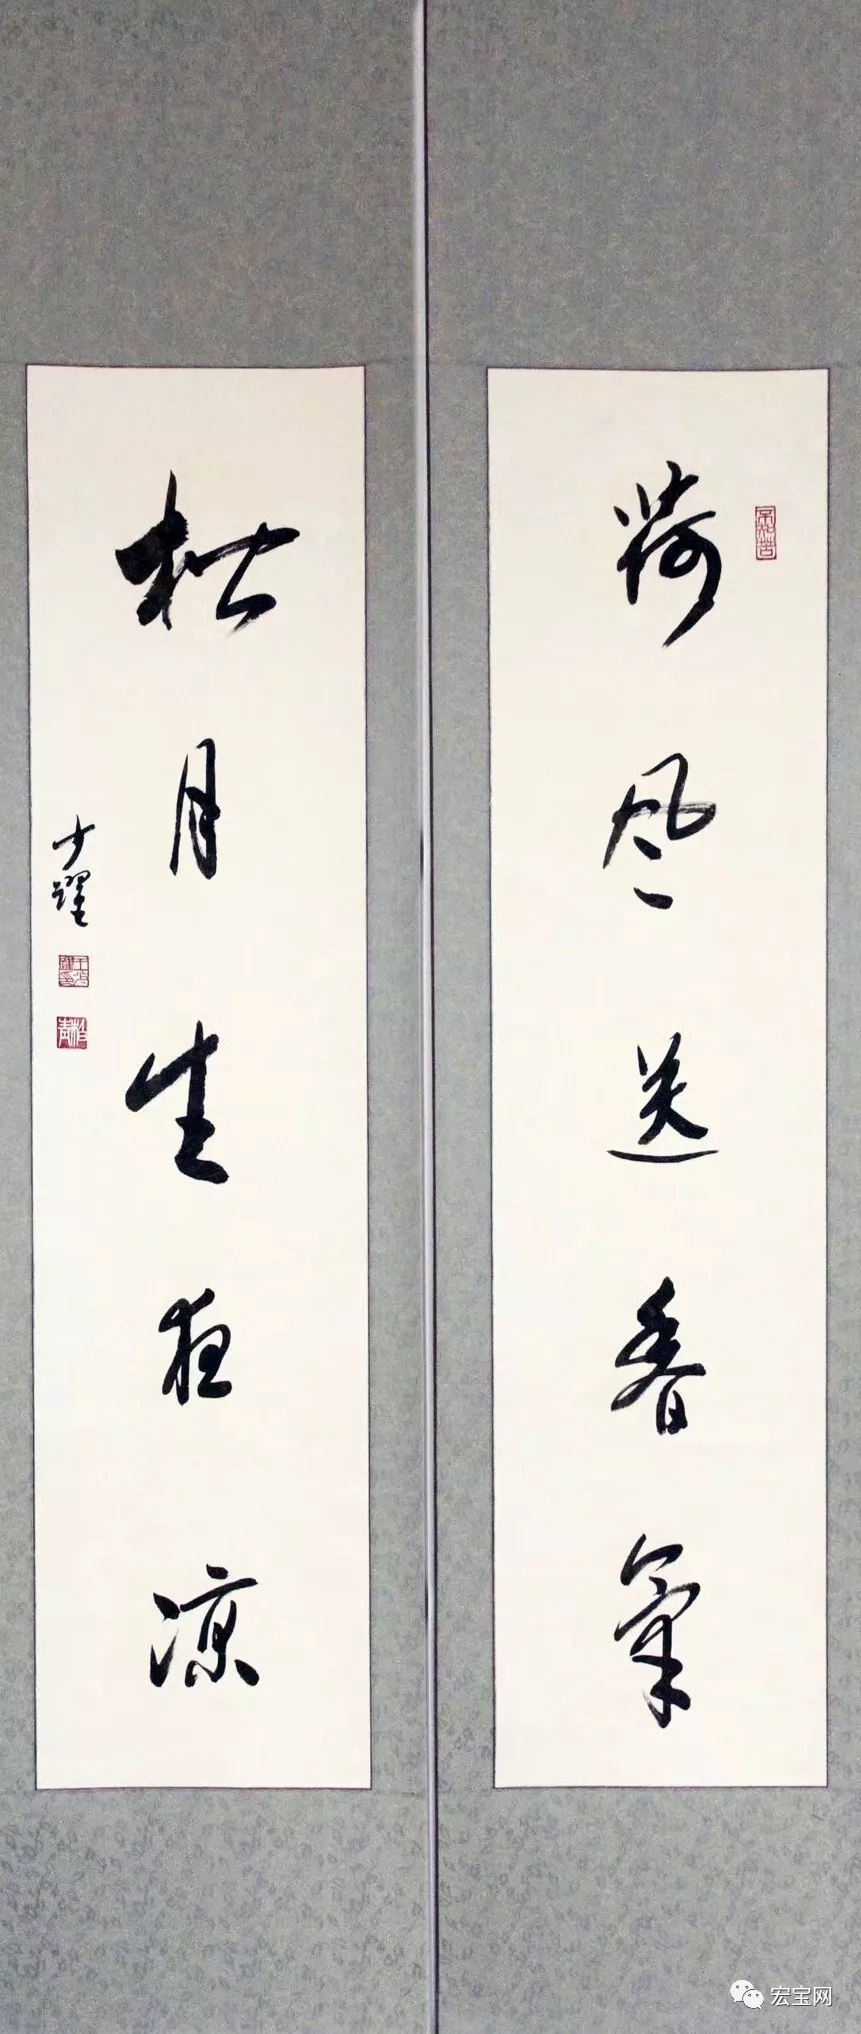 荷风送香氣
松月生夜凉
少躍
宏宝网